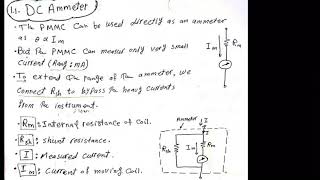 1.1. DC Ammeter
• The PMMC Can be used directly as an ammeter
as θ α Im
• But the PMMC Can measur only very small
Current (Rang: mA)
Im
Rm
• To extend the range of the ammeter, we
Connect Rsh to bypass the heavy currents
from the instrument.
• Rm : Internal resistance of Coil.
• Rsh : shunt resistance.
• I : Measured current.
• Im : Current of moving Coil.
Ammeter
I
Rsh
Im
Rm